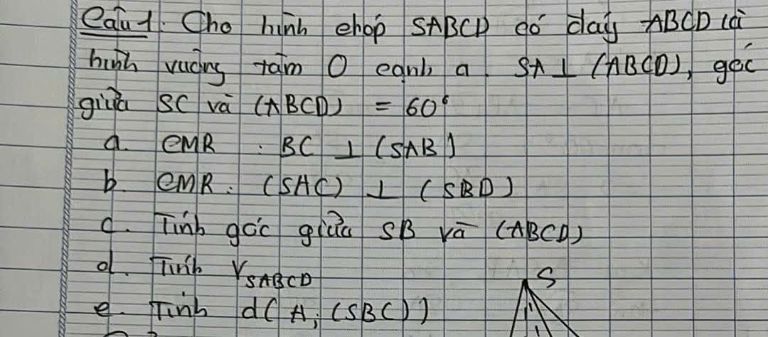 Câu 1. Cho hình chóp SABCD có đáy ABCD là
hình vuông tâm O cạnh a. SA ⊥ (ABCD), góc
giữa SC và (ABCD) = 60°
a. CMR : BC ⊥ (SAB)
b. CMR : (SAC) ⊥ (SBD)
c. Tính góc giữa SB và (ABCD)
d. Tính V_SABCD
S
e. Tính d(A; (SBC))